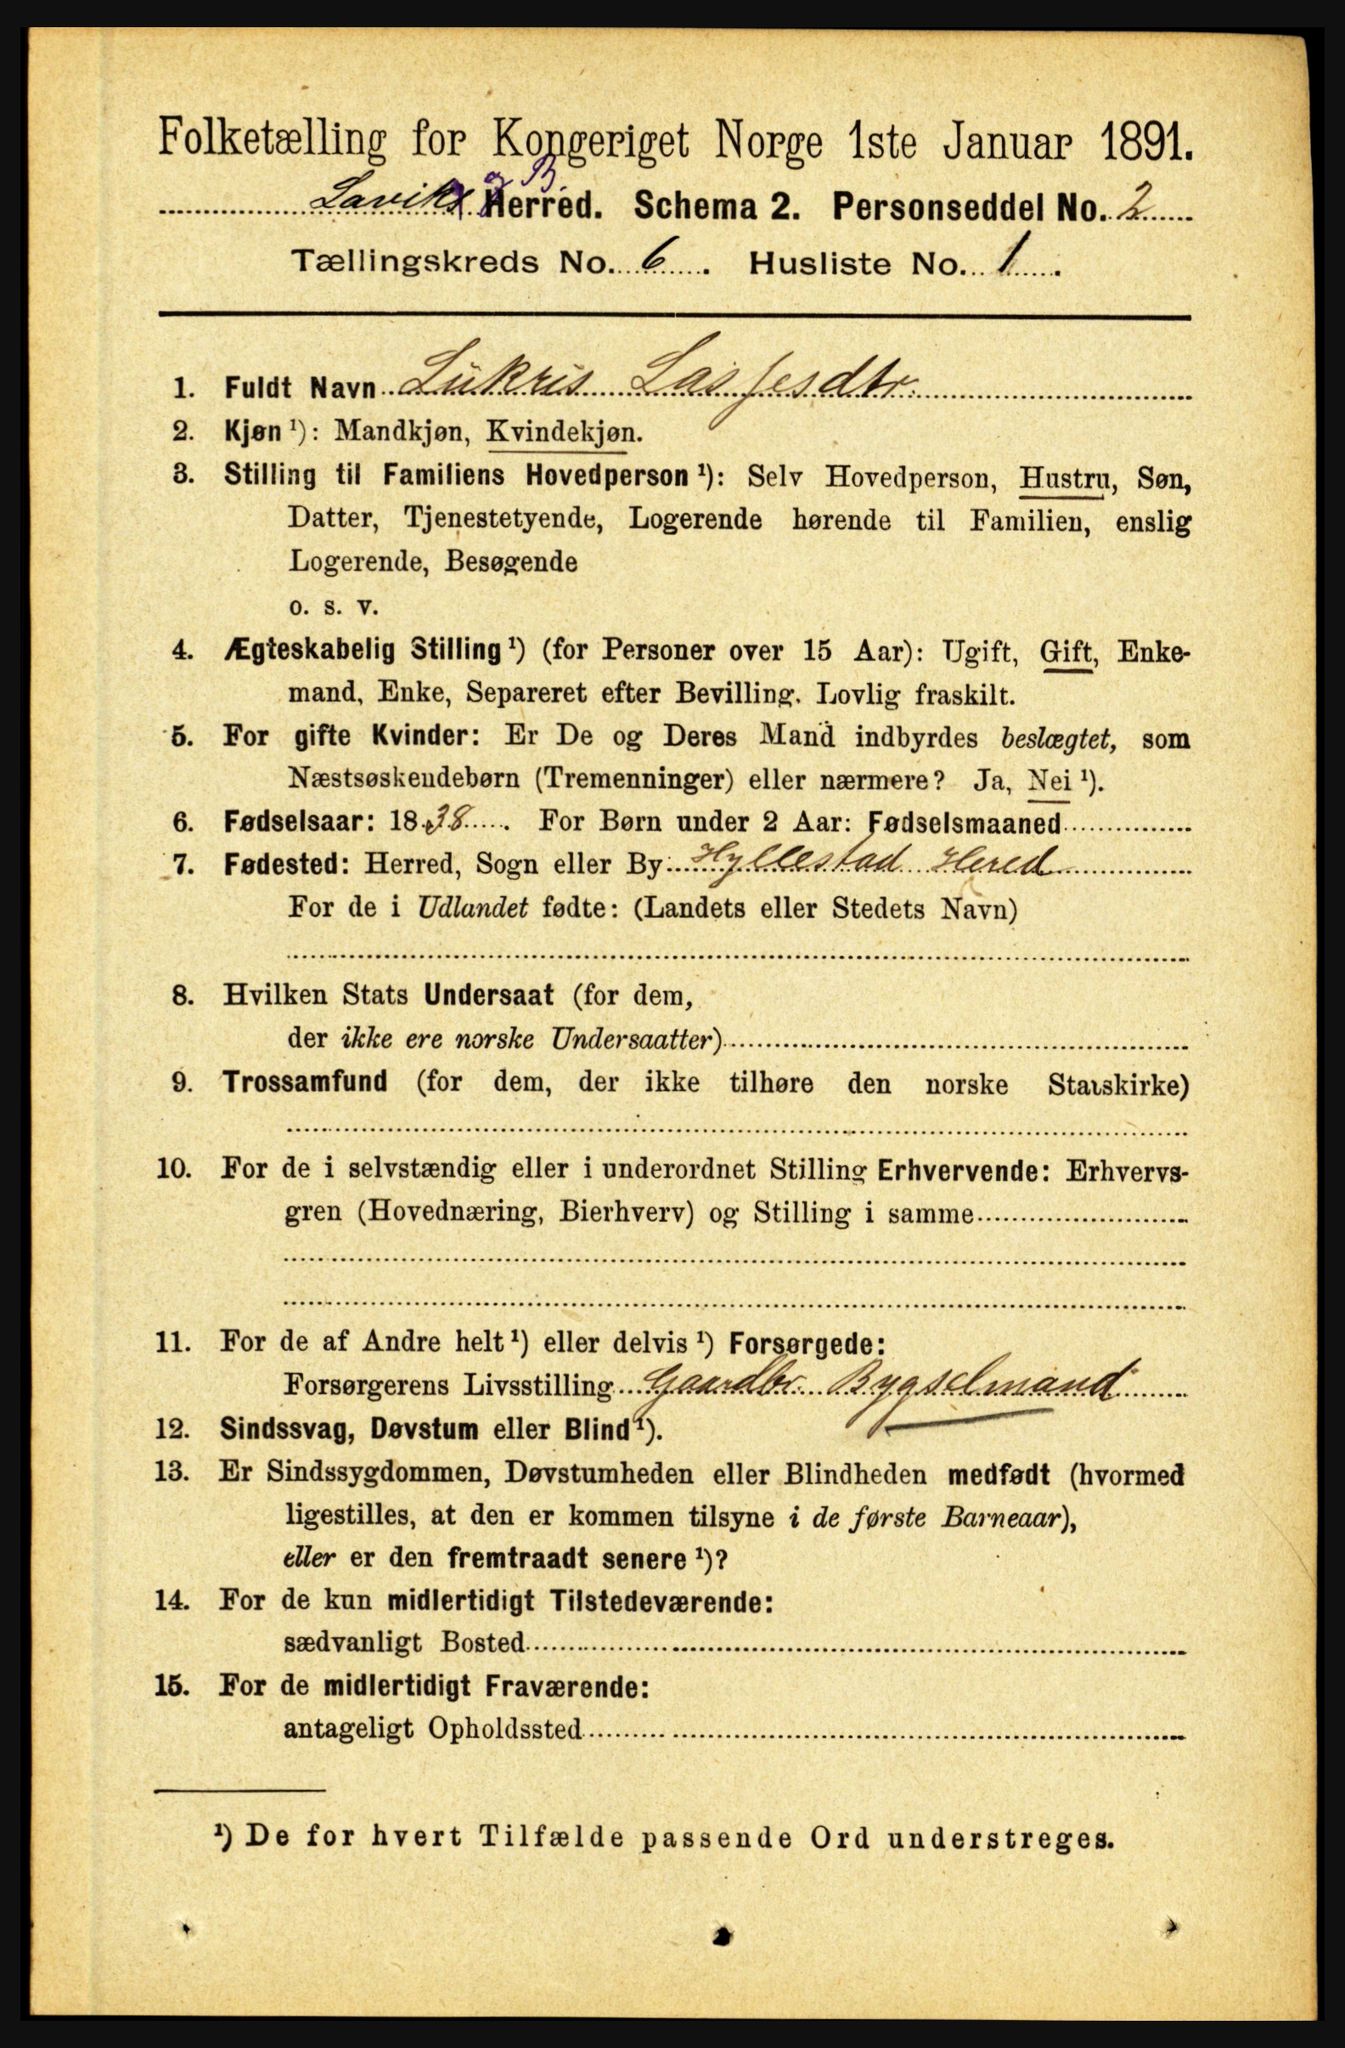 Folketælling for Kongeriget Norge 1ste Januar 1891.
og B.
Laviks Herred. Schema 2. Personseddel No. 2
Tællingskreds No. 6. Husliste No. 1.
1. Fuldt Navn Lukris Lasesdtr.
2. Kjøn ¹): Mandkjøn, Kvindekjøn.
3. Stilling til Familiens Hovedperson ¹): Selv Hovedperson, Hustru, Søn,
Datter, Tjenestetyende, Logerende hørende til Familien, enslig
Logerende, Besøgende
o. s. v.
4. Ægteskabelig Stilling ¹) (for Personer over 15 Aar): Ugift, Gift, Enke-
mand, Enke, Separeret efter Bevilling. Lovlig fraskilt.
5. For gifte Kvinder: Er De og Deres Mand indbyrdes beslægtet, som
Næstsøskendebørn (Tremenninger) eller nærmere? Ja, Nei ¹).
6. Fødselsaar: 1838. For Børn under 2 Aar: Fødselsmaaned
7. Fødested: Herred, Sogn eller By Hyllestad Hered
For de i Udlandet fødte: (Landets eller Stedets Navn)
8. Hvilken Stats Undersaat (for dem,
der ikke ere norske Undersaatter)
9. Trossamfund (for dem, der ikke tilhøre den norske Statskirke)
10. For de i selvstændig eller i underordnet Stilling Erhvervende: Erhvervs-
gren (Hovednæring, Bierhverv) og Stilling i samme
11. For de af Andre helt ¹) eller delvis ¹) Forsørgede:
Forsørgerens Livsstilling Gaardbr. Bygselmand
12. Sindssvag, Døvstum eller Blind ¹).
13. Er Sindssygdommen, Døvstumheden eller Blindheden medfødt (hvormed
ligestilles, at den er kommen tilsyne i de første Barneaar),
eller er den fremtraadt senere ¹)?
14. For de kun midlertidigt Tilstedeværende:
sædvanligt Bosted
15. For de midlertidigt Fraværende:
antageligt Opholdssted
¹) De for hvert Tilfælde passende Ord understreges.